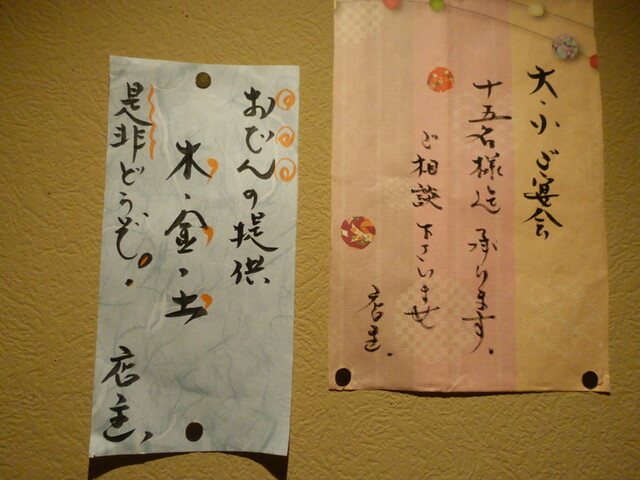 大・小 ご宴会
十五名様迄 承ります。
ご相談 下さいませ
店主、
おでんの提供
木・金・土
是非どうぞ!
店主、